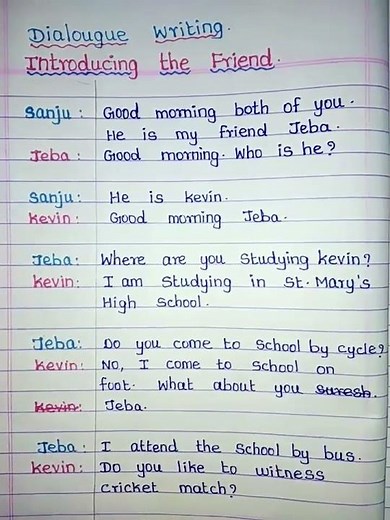 Dialougue Writing.
Introducing the Friend.
Sanju : Good morning both of you.
He is my friend Jeba.
Jeba : Good morning. Who is he?
Sanju : He is kevin.
Kevin : Good morning Jeba.
Jeba : Where are you studying kevin?
Kevin : I am studying in St. Mary's
High School.
Jeba : Do you come to school by cycle?
Kevin : No, I come to school on
foot. What about you suresh.
Kevin : Jeba.
Jeba : I attend the school by bus.
Kevin : Do you like to witness
cricket match?